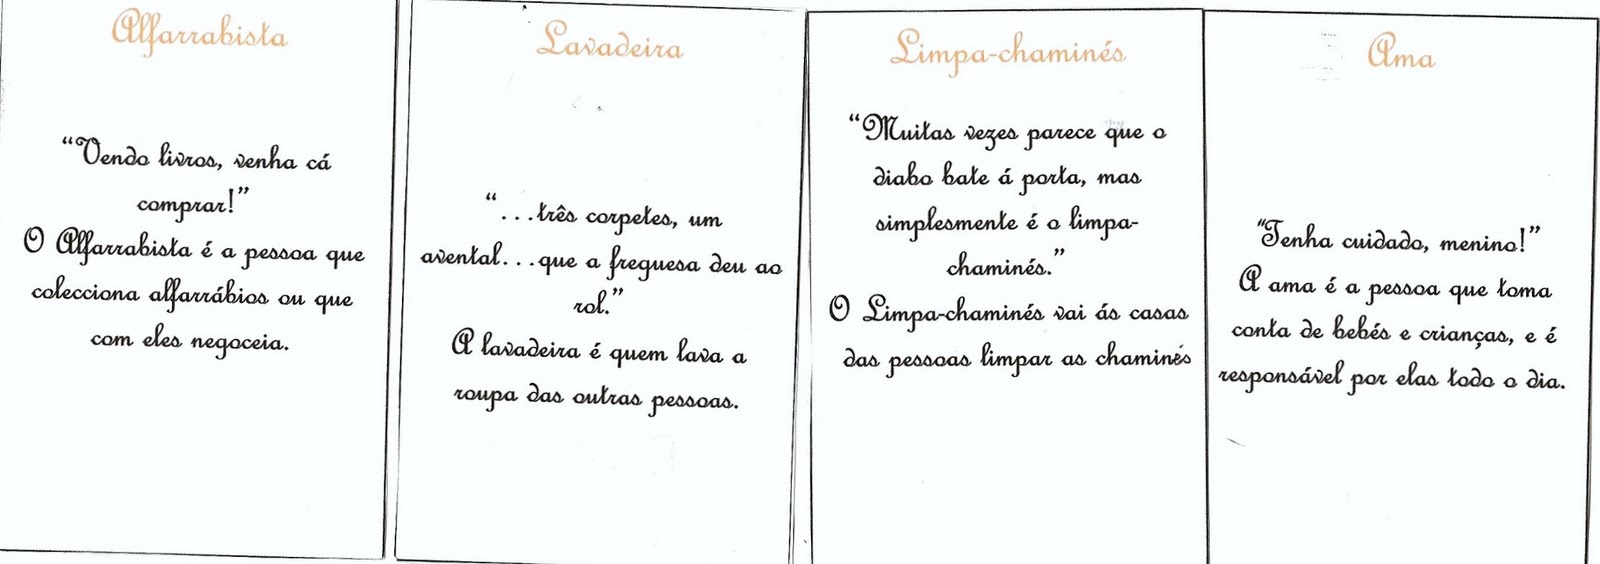 Alfarrabista
“Vendo livros, venha cá
comprar!”
O Alfarrabista é a pessoa que
colecciona alfarrábios ou que
com eles negoceia.
Lavadeira
“...três corpetes, um
avental...que a freguesa deu ao
rol.”
A lavadeira é quem lava a
roupa das outras pessoas.
Limpa-chaminés
“Muitas vezes parece que o
diabo bate á porta, mas
simplesmente é o limpa-
chaminés.”
O Limpa-chaminés vai ás casas
das pessoas limpar as chaminés
Ama
“Tenha cuidado, menino!”
A ama é a pessoa que toma
conta de bebés e crianças, e é
responsável por elas todo o dia.